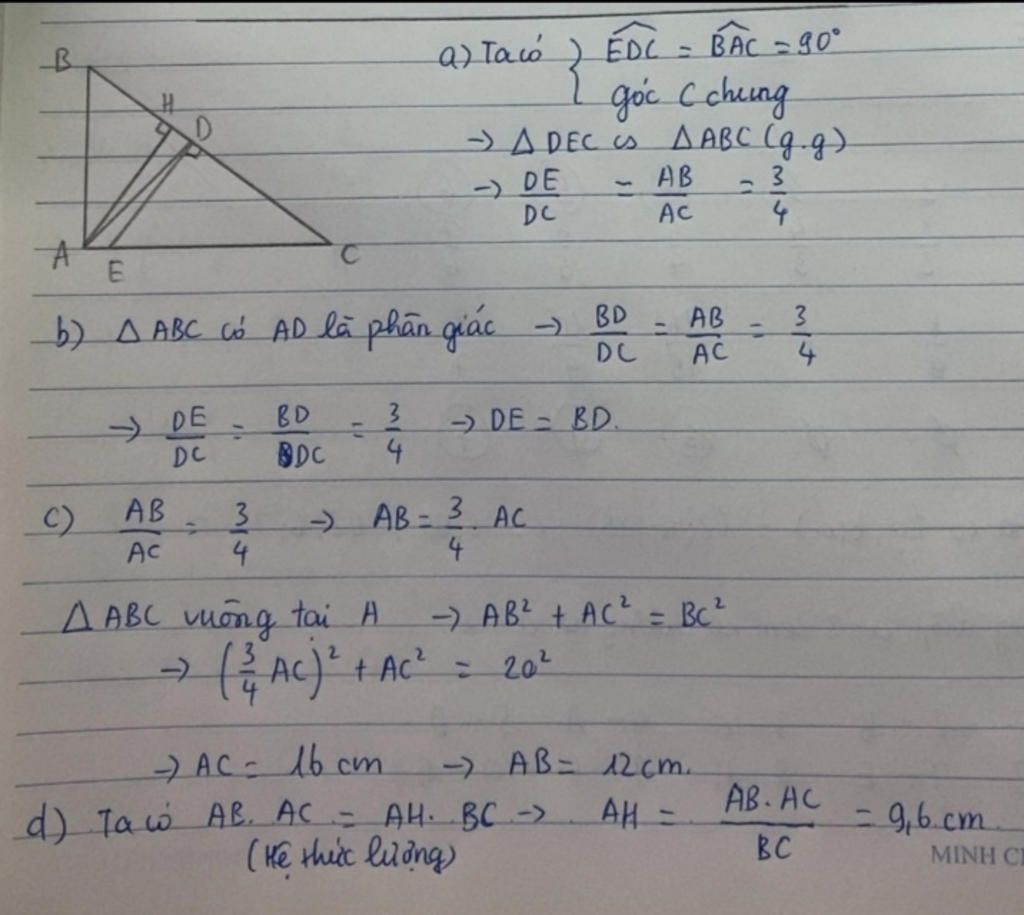 B
H
D
A
E
C
a) Ta có { $\widehat{EDC} = \widehat{BAC} = 90°$
góc C chung
→ Δ DEC ∽ Δ ABC (g.g)
→ $\frac{DE}{DC} = \frac{AB}{AC} = \frac{3}{4}$
b) Δ ABC có AD là phân giác → $\frac{BD}{DC} = \frac{AB}{AC} = \frac{3}{4}$
→ $\frac{DE}{DC} = \frac{BD}{DC} = \frac{3}{4}$ → DE = BD.
c) $\frac{AB}{AC} = \frac{3}{4}$ → AB = $\frac{3}{4}$ . AC
Δ ABC vuông tại A → AB² + AC² = BC²
→ $\left(\frac{3}{4} AC\right)^2$ + AC² = 20²
→ AC = 16 cm → AB = 12 cm.
d) Ta có AB. AC = AH. BC → AH = $\frac{AB.AC}{BC}$ = 9,6 cm
(Hệ thức lượng)
MINH C